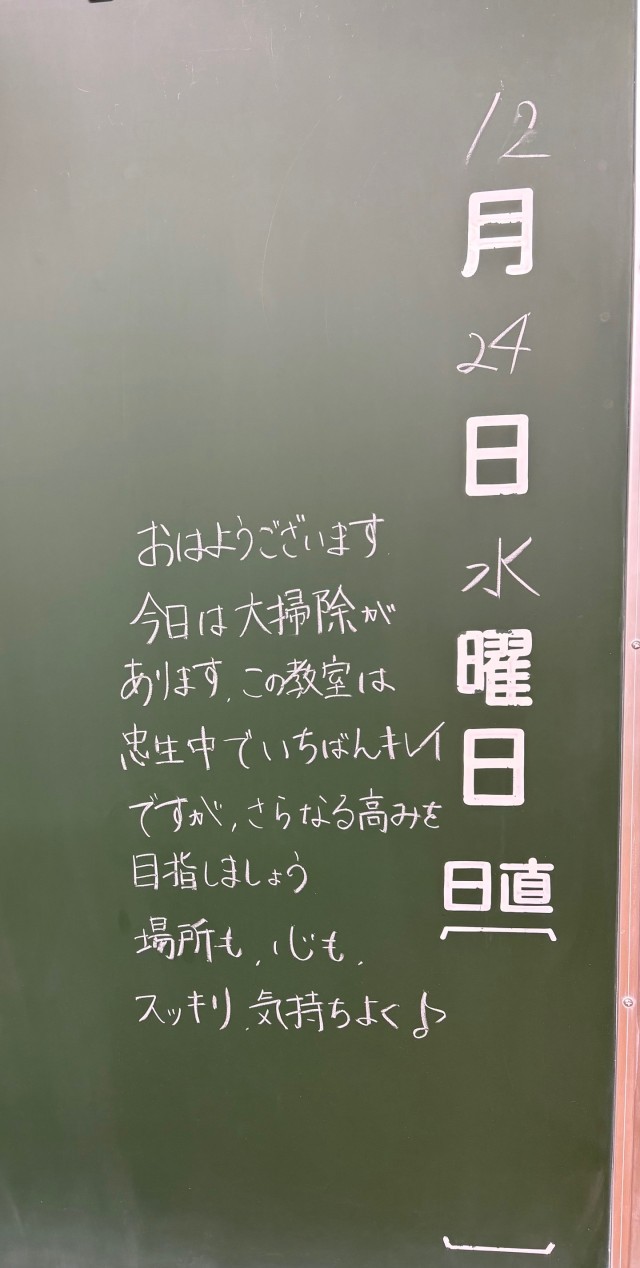 12月24日水曜日
日直
おはようございます
今日は大掃除が
あります、この教室は
忠生中でいちばんキレイ
ですが、さらなる高みを
目指しましょう
場所も、心も、
スッキリ、気持ちよく♪